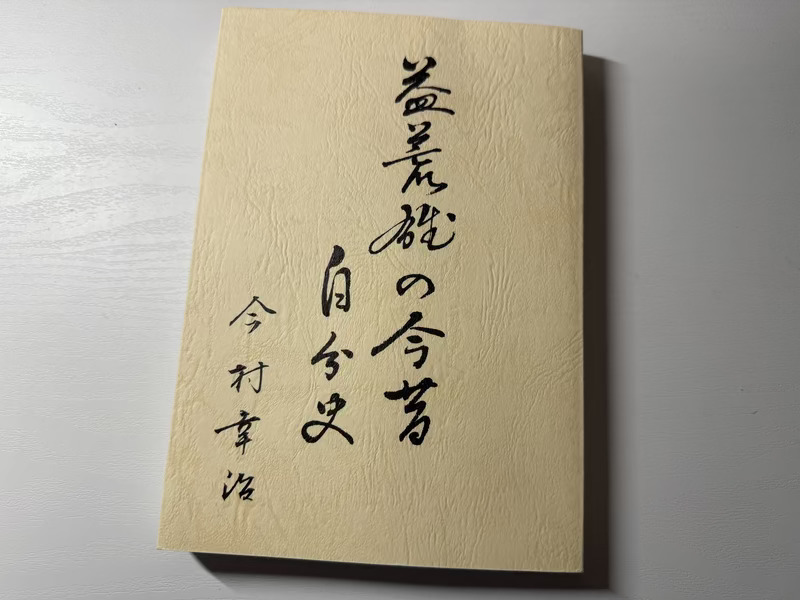 益荒雄の今昔
自分史
今村幸治